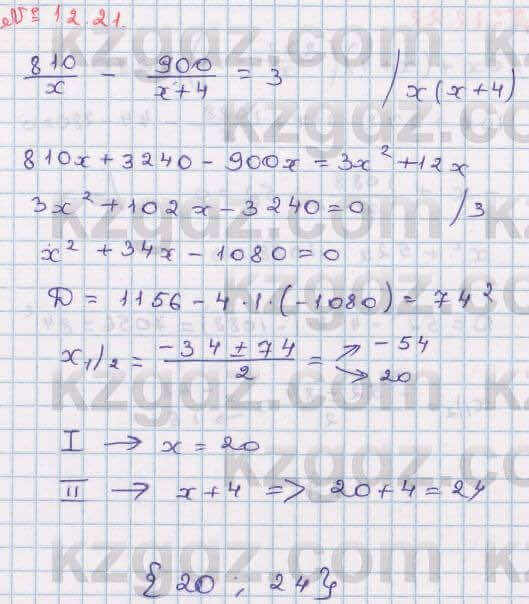 № 12.21.
810/x - 900/(x+4) = 3 / x(x+4)
810x+3240-900x=3x²+12x
3x²+102x-3240=0 /3
x²+34x-1080=0
D = 1156-4·1·(-1080)=74²
x₁/₂ = (-34±74)/2 = ↗ -54 ↘ 20
I → x=20
II → x+4 => 20+4=24
{20 ; 24}
kzgdz.com